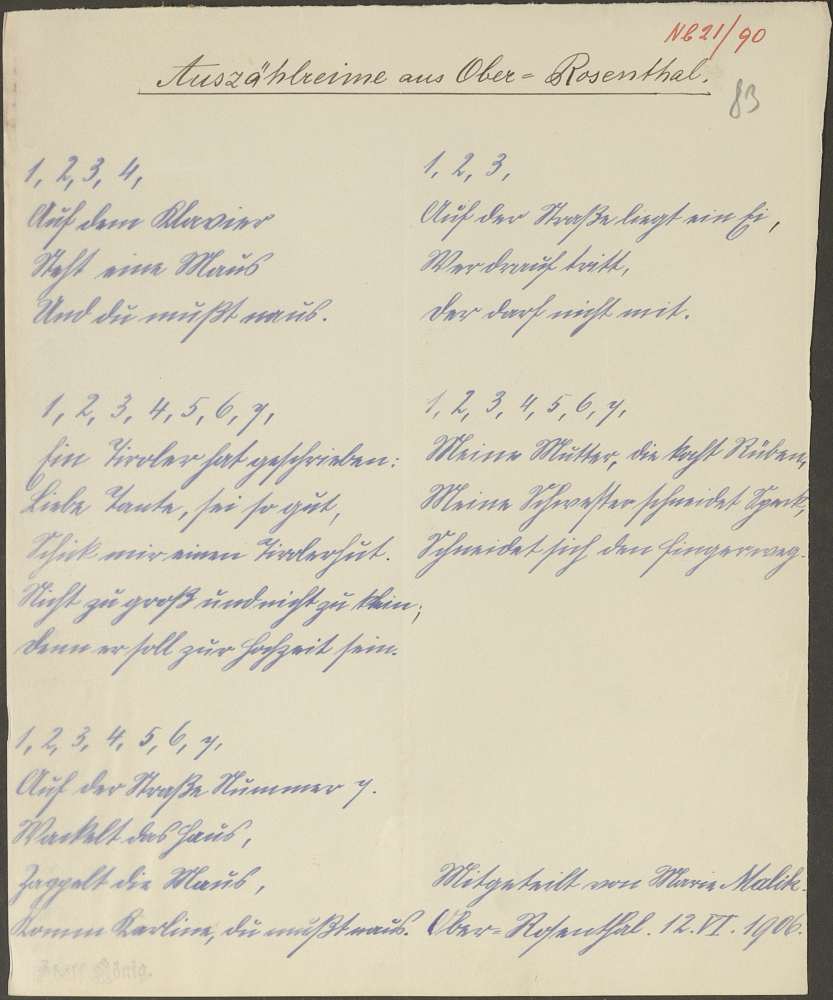 NB 21/90
Auszählreime aus Ober-Rosenthal.
83
1, 2, 3, 4,
Auf dem Klavier
Steht eine Maus
Und du mußt naus.
1, 2, 3, 4, 5, 6, 7,
Ein Tiroler hat geschrieben:
Liebe Tante, sei so gut,
Schick mir einen Tirolerhut.
Nicht zu groß und nicht zu klein;
Denn er soll zur Hochzeit sein.
1, 2, 3, 4, 5, 6, 7,
Auf der Straße Nummer 7.
Wackelt das Haus,
Zappelt die Maus,
Komm Karline, du mußt naus.
1, 2, 3,
Auf der Straße liegt ein Ei,
Wer drauf tritt,
Der darf nicht mit.
1, 2, 3, 4, 5, 6, 7,
Meine Mutter, die kocht Rüben,
Meine Schwester schneidet Speck,
Schneidet sich den Finger weg.
Mitgeteilt von Marie Malik.
Ober-Rosenthal. 12. VI. 1906.